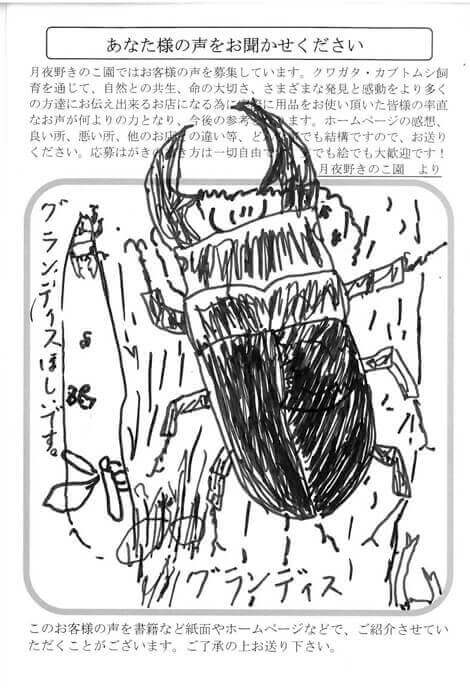 あなた様の声をお聞かせください
月夜野きのこ園ではお客様の声を募集しています。クワガタ・カブトムシ飼
育を通じて、自然との共生、命の大切さ、さまざまな発見と感動をより多く
の方達にお伝え出来るお店になる為に 用品をお使い頂いた皆様の率直
なお声が何よりの力となり、今後の参考 ます。ホームページの感想、
良い所、悪い所、他のお 違い等、ど でも結構ですので、お送り
ください。応募はがき き方は一切自由で でも絵でも大歓迎です！
月夜野きのこ園 より
グランディスほしいです。
グランディス
このお客様の声を書籍など紙面やホームページなどで、ご紹介させてい
ただくことがございます。ご了承の上お送り下さい。